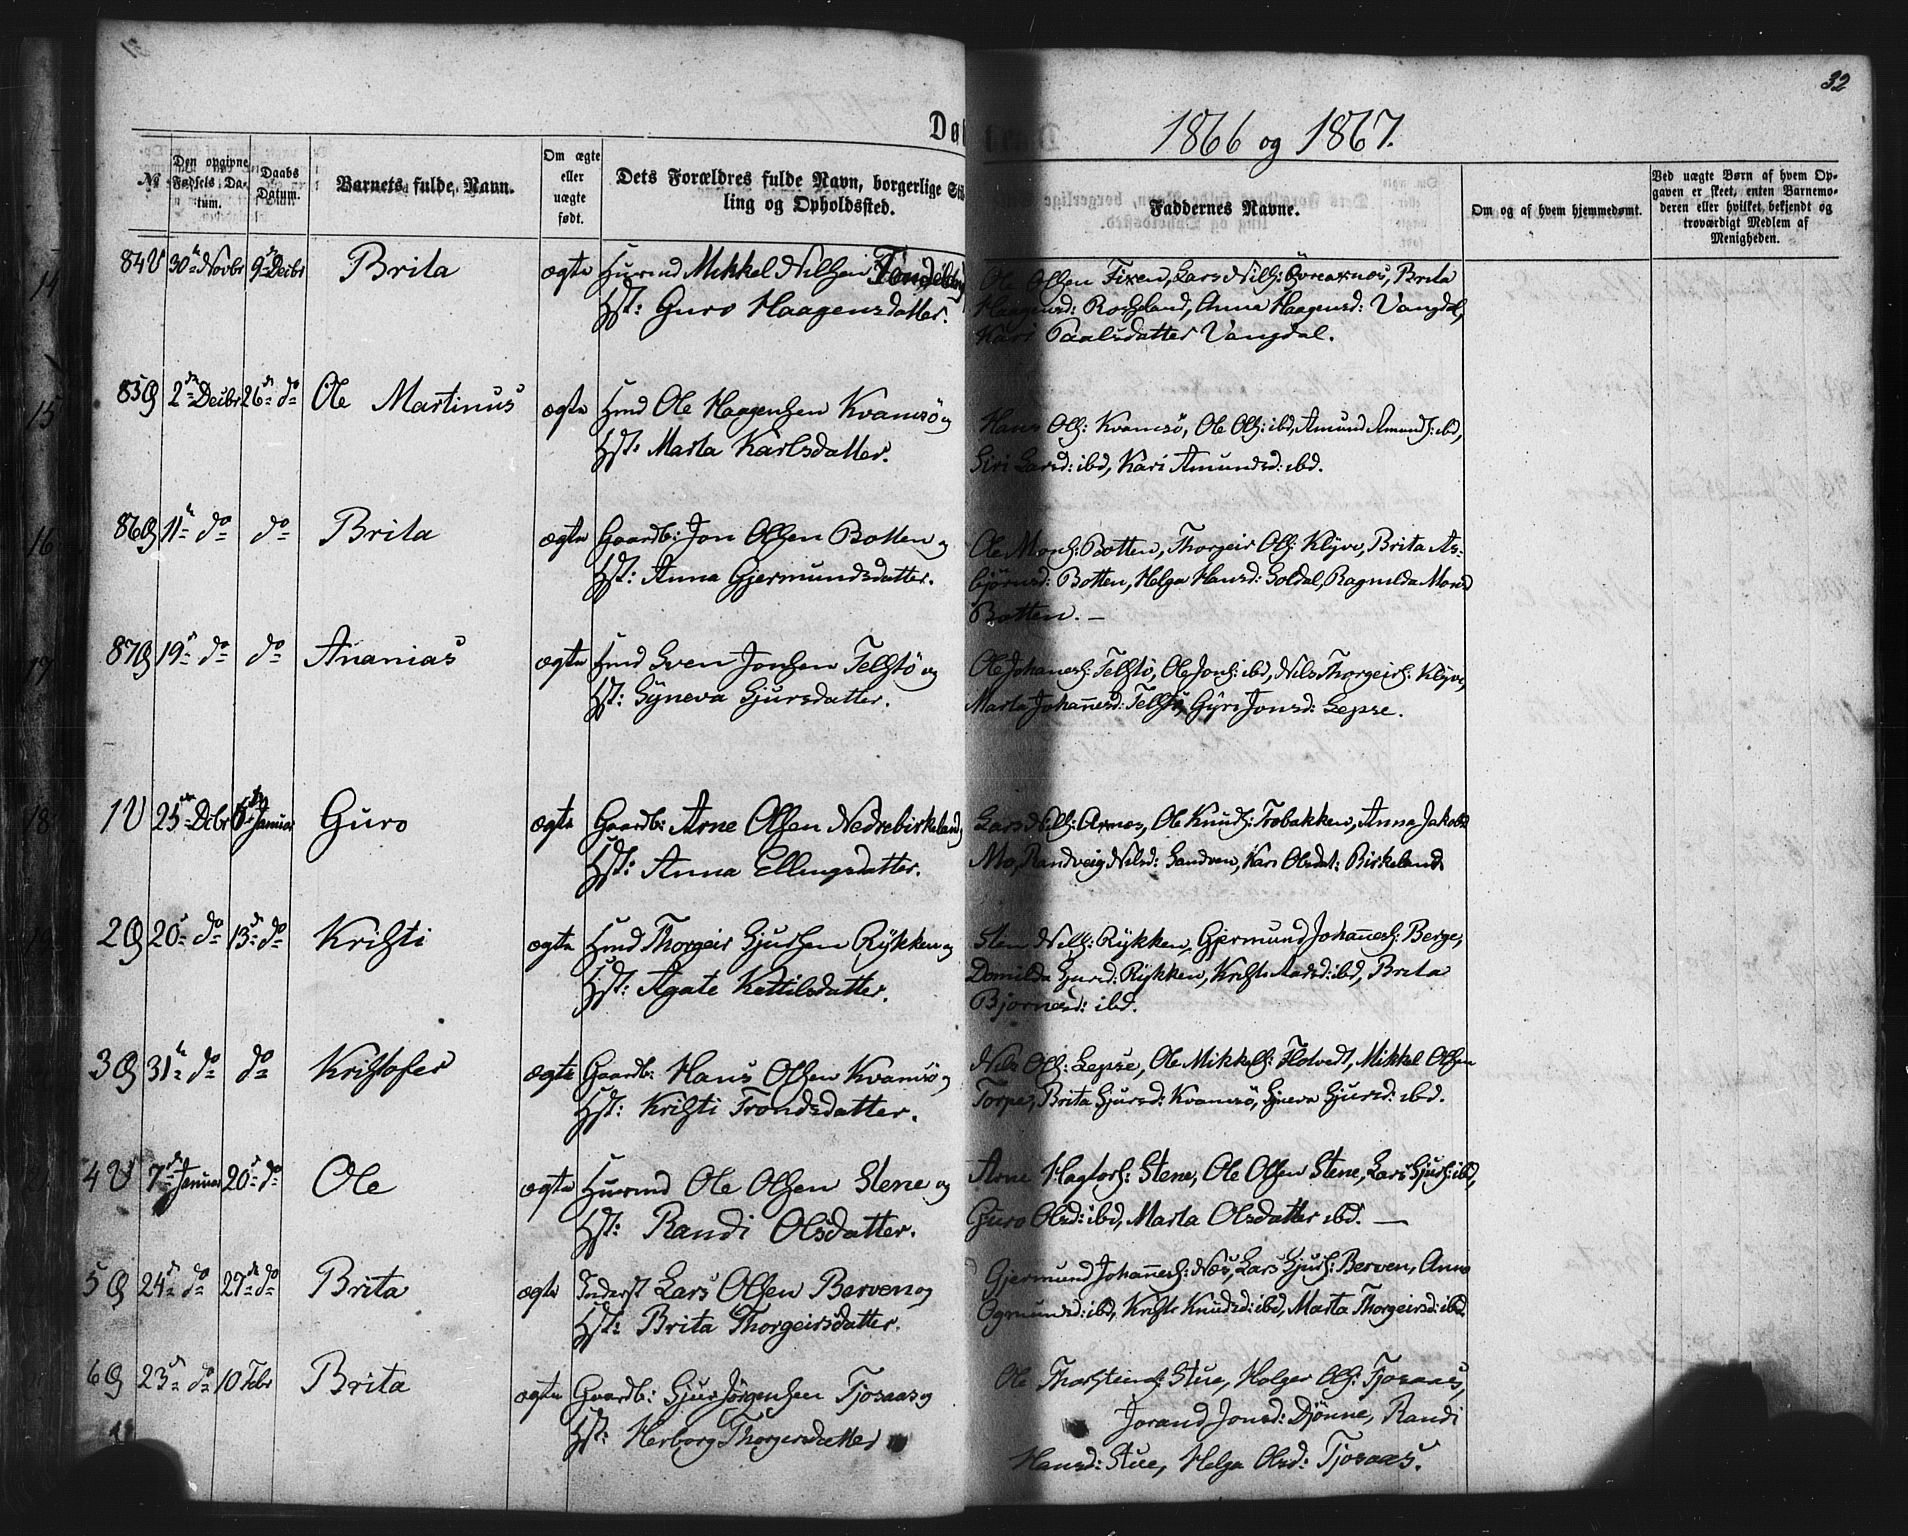 32
Døb
1866 og 1867.
№
Den opgivne Fødsels Da-
tum.
Daabs
Datum.
Barnets fulde Navn.
Om ægte
eller
uægte
født.
Dets Forældres fulde Navn, borgerlige Stil
ling og Opholdssted.
Faddernes Navne.
Om og af hvem hjemmedømt.
Ved uægte Børn af hvem Op-
gaven er skeet, enten Barnemo-
deren eller hvilket bekjendt og
troværdigt Medlem af
Menigheden.
84 V 30te Novbr 9de Decbr Brita ægte Husmd Mikkel Nilsen
Hst: Guro Haagensdatter.
Ole Olsen Fixen, Lars Nils: Övreaxnos, Brita
Haagensd: Rosseland, Anna Haagensd: Vangdal,
Kari Paalsdatter Vangdal.
85 Ø 2den Decbr 26de do Ole Martinus ægte Hmd Ole Haagensen Kvamsö og
Hst: Marta Karlsdatter.
Hans Ols: Kvamsö, Ole Ols: ibd, Amund Amunds: ibd,
Siri Larsd: ibd, Kari Amundsd: ibd.
86 Ø 11te do do Brita ægte Gaardb: Jon Olsen Botten og
Hst: Anna Gjermundsdatter.
Ole Mons: Botten, Thorgeir Ols: Klÿve, Brita As-
björnsd: Botten, Helga Hansd: Soldal, Ragnilda Monsd
Botten. —
87 Ø 19de do do Ananias ægte Hmd Sven Jonsen Telstö og
Hst: Sÿneva Sjursdatter.
Ole Johanes: Telstö, Ole Jons: ibd, Nils Thorgeirs: Klÿve,
Marta Johannesd: Telstö, Gÿri Jonsd: Sepse.
1 V 25de Decbr 6te Januar Guro ægte Gaardb: Arne Olsen Nedrebirkeland,
Hst: Anna Ellingsdatter.
Lars Nils: Axnos, Ole Knuds: Trobakken, Anna Jakobsd
Mo, Randveig Nilsd: Sandven, Kari Olsdat: Birkeland
2 Ø 20de do 13de do Kristi ægte Hmd Thorgeir Sjursen Rÿkken og
Hst: Agate Kettilsdatter.
Sten Nils: Rÿkken, Gjermund Johannes: Berge,
Domilda Sjursd: Rÿkken, Kristi Aadsd: ibd, Brita
Bjornesd: ibd.
3 Ø 31te do do Kristofer ægte Gaardb: Hans Olsen Kvamsö og
Hst: Kristi Trondsdatter.
Nils Ols: Sepse, Ole Mikkels: Flotvedt, Mikkel Olsen
Torpe, Brita Sjursd: Kvamsö, Sjneva Sjursd: ibd.
4 V 7de Januar 20de do Ole ægte Husmd Ole Olsen Stene og
Hst: Randi Olsdatter.
Arne Hagtors: Stene, Ole Olsen Stene, Lars Sjurs: ibd,
Guro Olsd: ibd, Marta Olsdatter ibd. —
5 Ø 24de do 27de do Brita ægte Inderst Lars Olsen Berven og
Hst: Brita Thorgeirsdatter.
Gjermund Johannes: Næs, Lars Sjurs: Berven, Anna
Ogmundsd: ibd, Kristi Knudsd: ibd, Marta Thorgeirsd: ibd
6 Ø 23de do 10 Febr Brita ægte Gaardb: Sjur Jörgensen Tjosaas og
Hst: Herborg Thorgersdatter
Ole Thorsteins: Stue, Holger Ols: Tjosaas,
Jorand Jonsd: Djönne, Randi
Hansd: Stue, Helga Olsd: Tjosaas.